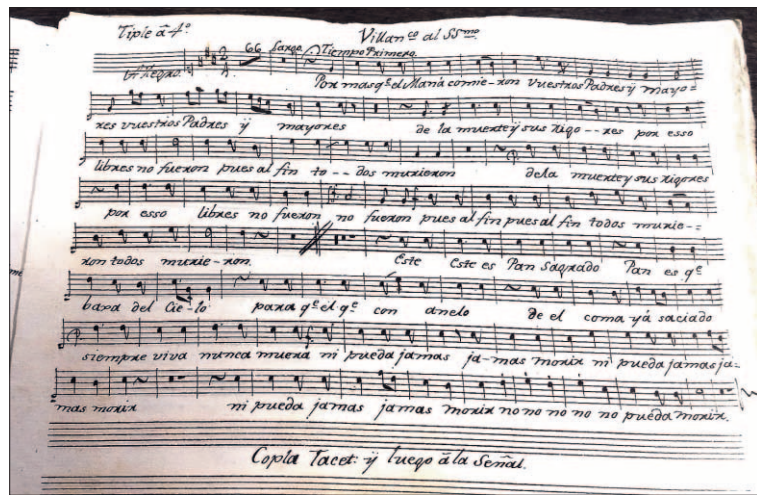 Tiple â 4º. Villanco al SSmo.
Allegro. 66 Largo. Tiempo Primero.
Por mas qe. el Maná comie-ron vuestros Padres ÿ mayo=
res vuestros Padres ÿ mayores de la muerte ÿ sus rigo--res por esso
libres no fueron pues al fin to--dos murieron dela muerte y sus rigores
por esso libres no fueron no fueron pues al fin pues al fin todos murie-=
ron todos murie-ron. Este Este es Pan Sagrado Pan es qe
baxa del Cie-lo para qe. el qe con anelo de el coma yá saciado
siempre viva nunca muera ni pueda jamas ja-mas morir ni pueda jamas ja=
mas morir ni pueda jamas jamas morir no no no no no pueda morir.
Copla Tacet: ÿ luego â la Señal.